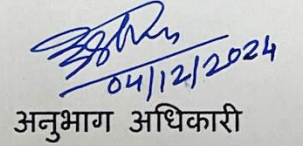 04/12/2024
अनुभाग अधिकारी